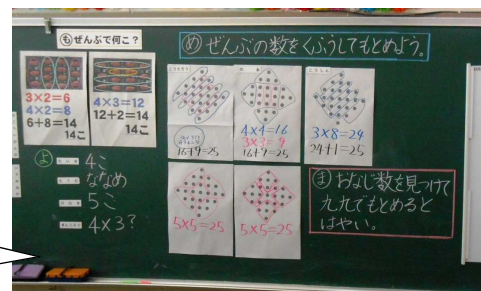 も ぜんぶで何こ?
3×2=6
4×2=8
6+8=14
14こ
4×3=12
12+2=14
14こ
よ
4こ
ななめ
5こ
4×3?
め ぜんぶの数をくふうしてもとめよう。
16+9=25
4×4=16
3×3=9
16+9=25
3×8=24
24+1=25
5×5=25
5×5=25
ま おなじ数を見つけて
九九でもとめると
はやい。